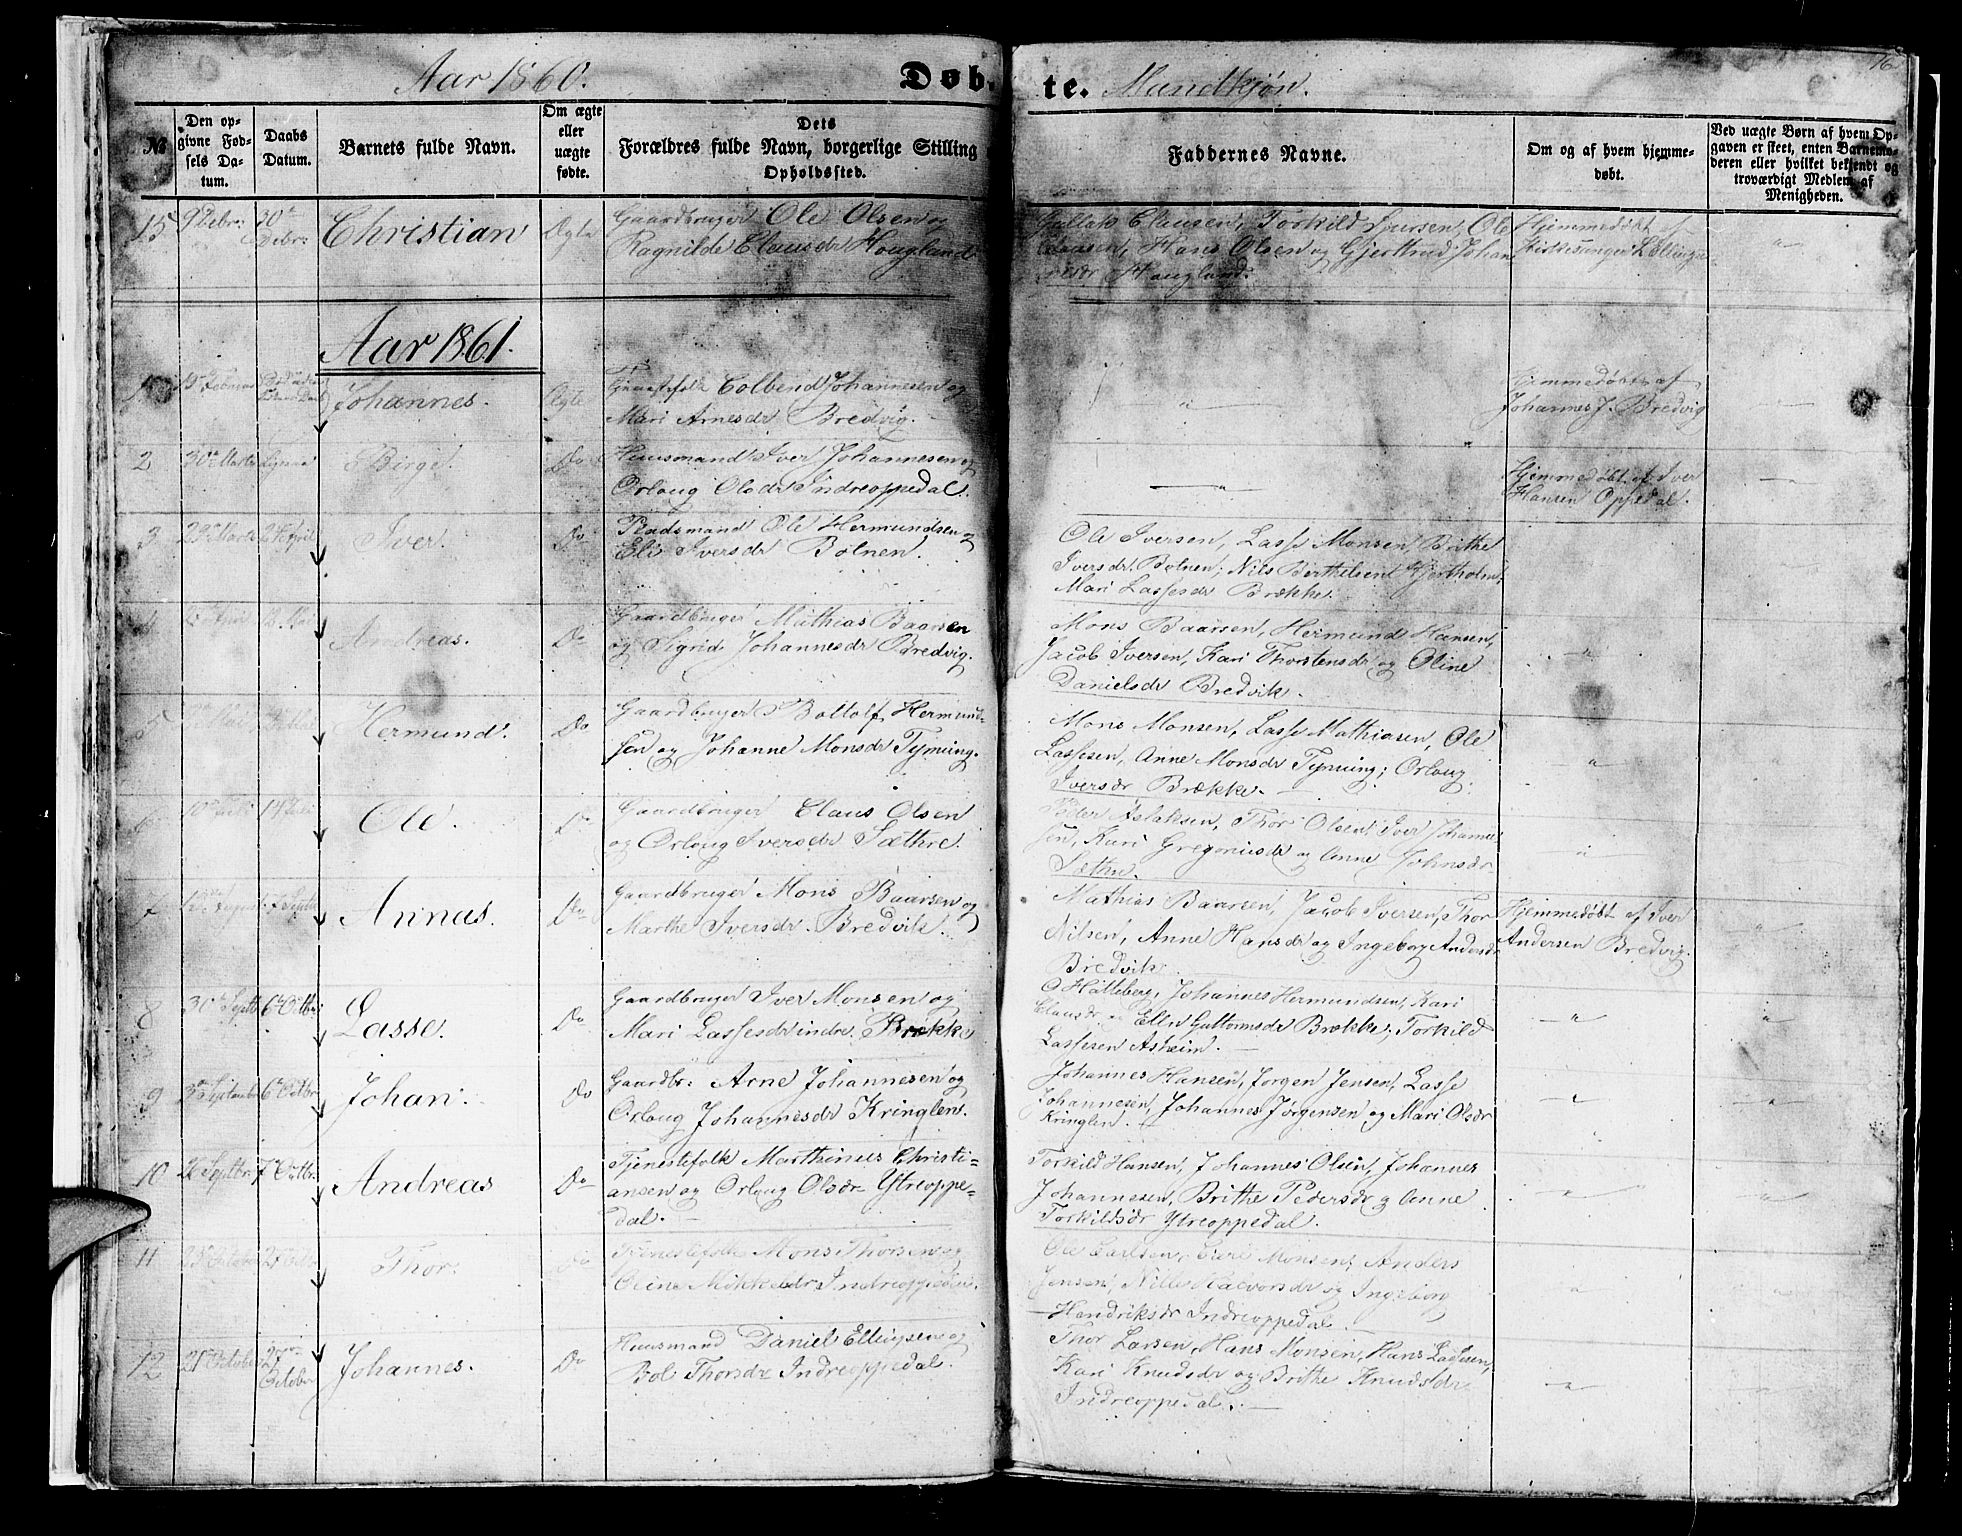 Aar 1860.
Døb-
te. Mandkjøn.
76
No
Den op-
givne Fød-
sels Da-
tum.
Daabs
Datum.
Barnets fulde Navn.
Om ægte
eller
uægte
fødte.
Dets
Forældres fulde Navn, borgerlige Stilling
Opholdssted.
Faddernes Navne.
Om og af hvem hjemme-
døbt.
Ved uægte Børn af hvem Op-
gaven er skeet, enten Barnemo-
deren eller hvilket bekjendt og
troværdigt Medlem af
Menigheden.
15
Christian
Ægte
Gaardbruger Ole Olsen og
Ragnilde Clausdr Hougland
Gullak Clausen, Torkild Olsen, Ole
Claasen, Hans Olsen og Gjertrud Johan
Hougland.
Hjemmedøbt af
Kirkesanger
Aar 1861.
1
15 Februar
Johannes.
Ægte
Colbend Johannesen og
Mari Arnesdr Bredvig.
Hjemmedøbt af
Johannes J. Bredvig
2
30te Marts
Birge.
Do
Huusmand Iver Johannesen og
Orloug Olsdr Indreoppedal.
Hjemmedøbt af Iver
Hansen Oppedal.
3
29 Marts
Iver.
Do
Pladsmand Ole Hermundsen og
Eli Iversdr Bolnen.
Ole Iversen, Lasse Monsen, Brithe
Iversdr Bolnen; Nils Berthelsen Hjortholm,
Mari Lassesdr Brække.
4
Andreas.
Do
Gaardbruger Mathias Baarsen
og Sigrid Johannesdr Bredvig.
Mons Baarsen, Hermund Hansen,
Jacob Iversen, Kari Thorstensdr og Oline
Danielsdr Bredvik.
5
Hermund.
Do
Gaardbruger Bottolf Hermund-
sen og Johanne Monsdr Tynning.
Mons Monsen, Lasse Mathiasen, Ole
Lassesen, Anne Monsdr Tynning; Orloug
Iversdr Brække.
6
14 Juli
Ole.
Do
Gaardbruger Claus Olsen
og Orloug Iversdr Sæthre.
Peder Aslaksen, Thor Olsen, Iver Johanne
sen, Kari Gregoriusdr og Anne Johnsdr
Sæthre.
7
Annas.
Do
Gaardbruger Mons Baarsen og
Marthe Iversdr Bredvik.
Mathias Baarsen, Jacob Iversen, Thor
Nilsen, Anne Hansdr og Ingeborg Andersdr
Bredvik.
Hjemmedøbt af Iver
Andersen Bredvig.
8
30 Septb
6te Octbr
Lasse.
Do
Gaardbruger Iver Monsen og
Mari Lassesdr indre Brække
O Hatteberg, Johannes Hermundsen, Kari
Clausdr og Ellin Guttormsdr Brække; Torkild
Lassesen Asheim.
9
6te Octbr
Johan.
Do
Gaardbr: Arne Johannesen og
Orloug Johannesdr Kringlen.
Johannes Hansen, Jørgen Jensen, Lasse
Johannesen, Johannes Jørgensen og Mari Olsdr
Kringlen.
10
25 Septbr
7de Octbr.
Andreas
Do
Tjenestefolk Marthinus Christi-
ansen og Orloug Olsdr Ytreoppe-
dal.
Torkild Hansen, Johannes Olsen, Johannes
Johannesen, Brithe Pedersdr og Anne
Torkildsdr Ytreoppedal.
11
October
Thor.
Do
Tjenestefolk Mons Thorsen og
Oline Mikkelsdr Indreoppedal.
Ole Carlsen, Carl Monsen, Anders
Jensen, Nille Halvorsdr og Ingeborg
Hendriksdr Indreoppedal
12
21 October
27de
October
Johannes.
Do
Huusmand Daniel Ellingsen og
Bol Thorsdr Indreoppedal.
Thor Larsen, Hans Monsen, Hans Lassesen,
Kari Knudsdr og Brithe Knudsdr
Indreoppedal.